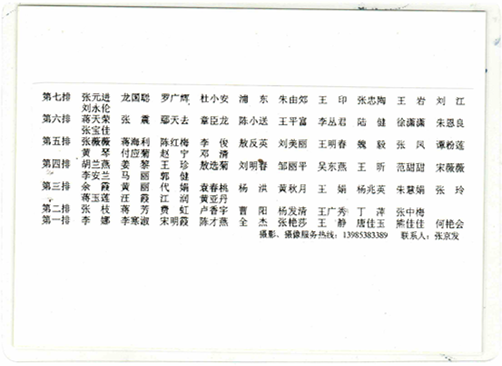 第七排 张元进 龙国聪 罗广辉 杜小安 浦东 朱由郊 王印 张忠陶 王岩 刘江
刘永伦
第六排 蒋天荣 张震 鄢天去 章臣龙 陈小送 王平富 李丛君 陆健 徐潇潇 朱恩良
张宝佳
第五排 张薇薇 蒋海利 陈红梅 李俊 敖反英 刘美丽 王明春 魏毅 张凤 谭粉莲
黄琴 付应菊 赵宁 邓清
第四排 胡兰燕 姜黎 王珍 敖选菊 刘明春 邹丽平 吴东燕 王昕 范甜甜 宋薇薇
李安兰 马丽 郭健
第三排 余霞 黄丽 代娟 袁春桃 杨洪 黄秋月 王娟 杨兆英 朱慧娟 张玲
蒋玉莲 汪霞 江润 黄亚丹
第二排 张枝 蒋芳 费虹 卢香宇 曹阳 杨发清 王广秀 丁萍 张中梅
第一排 李娜 李寒淑 宋明霞 陈才燕 全杰 张艳莎 王静 唐佳玉 熊佳佳 何艳会
摄影、摄像服务热线：13985383389 联系人：张京发